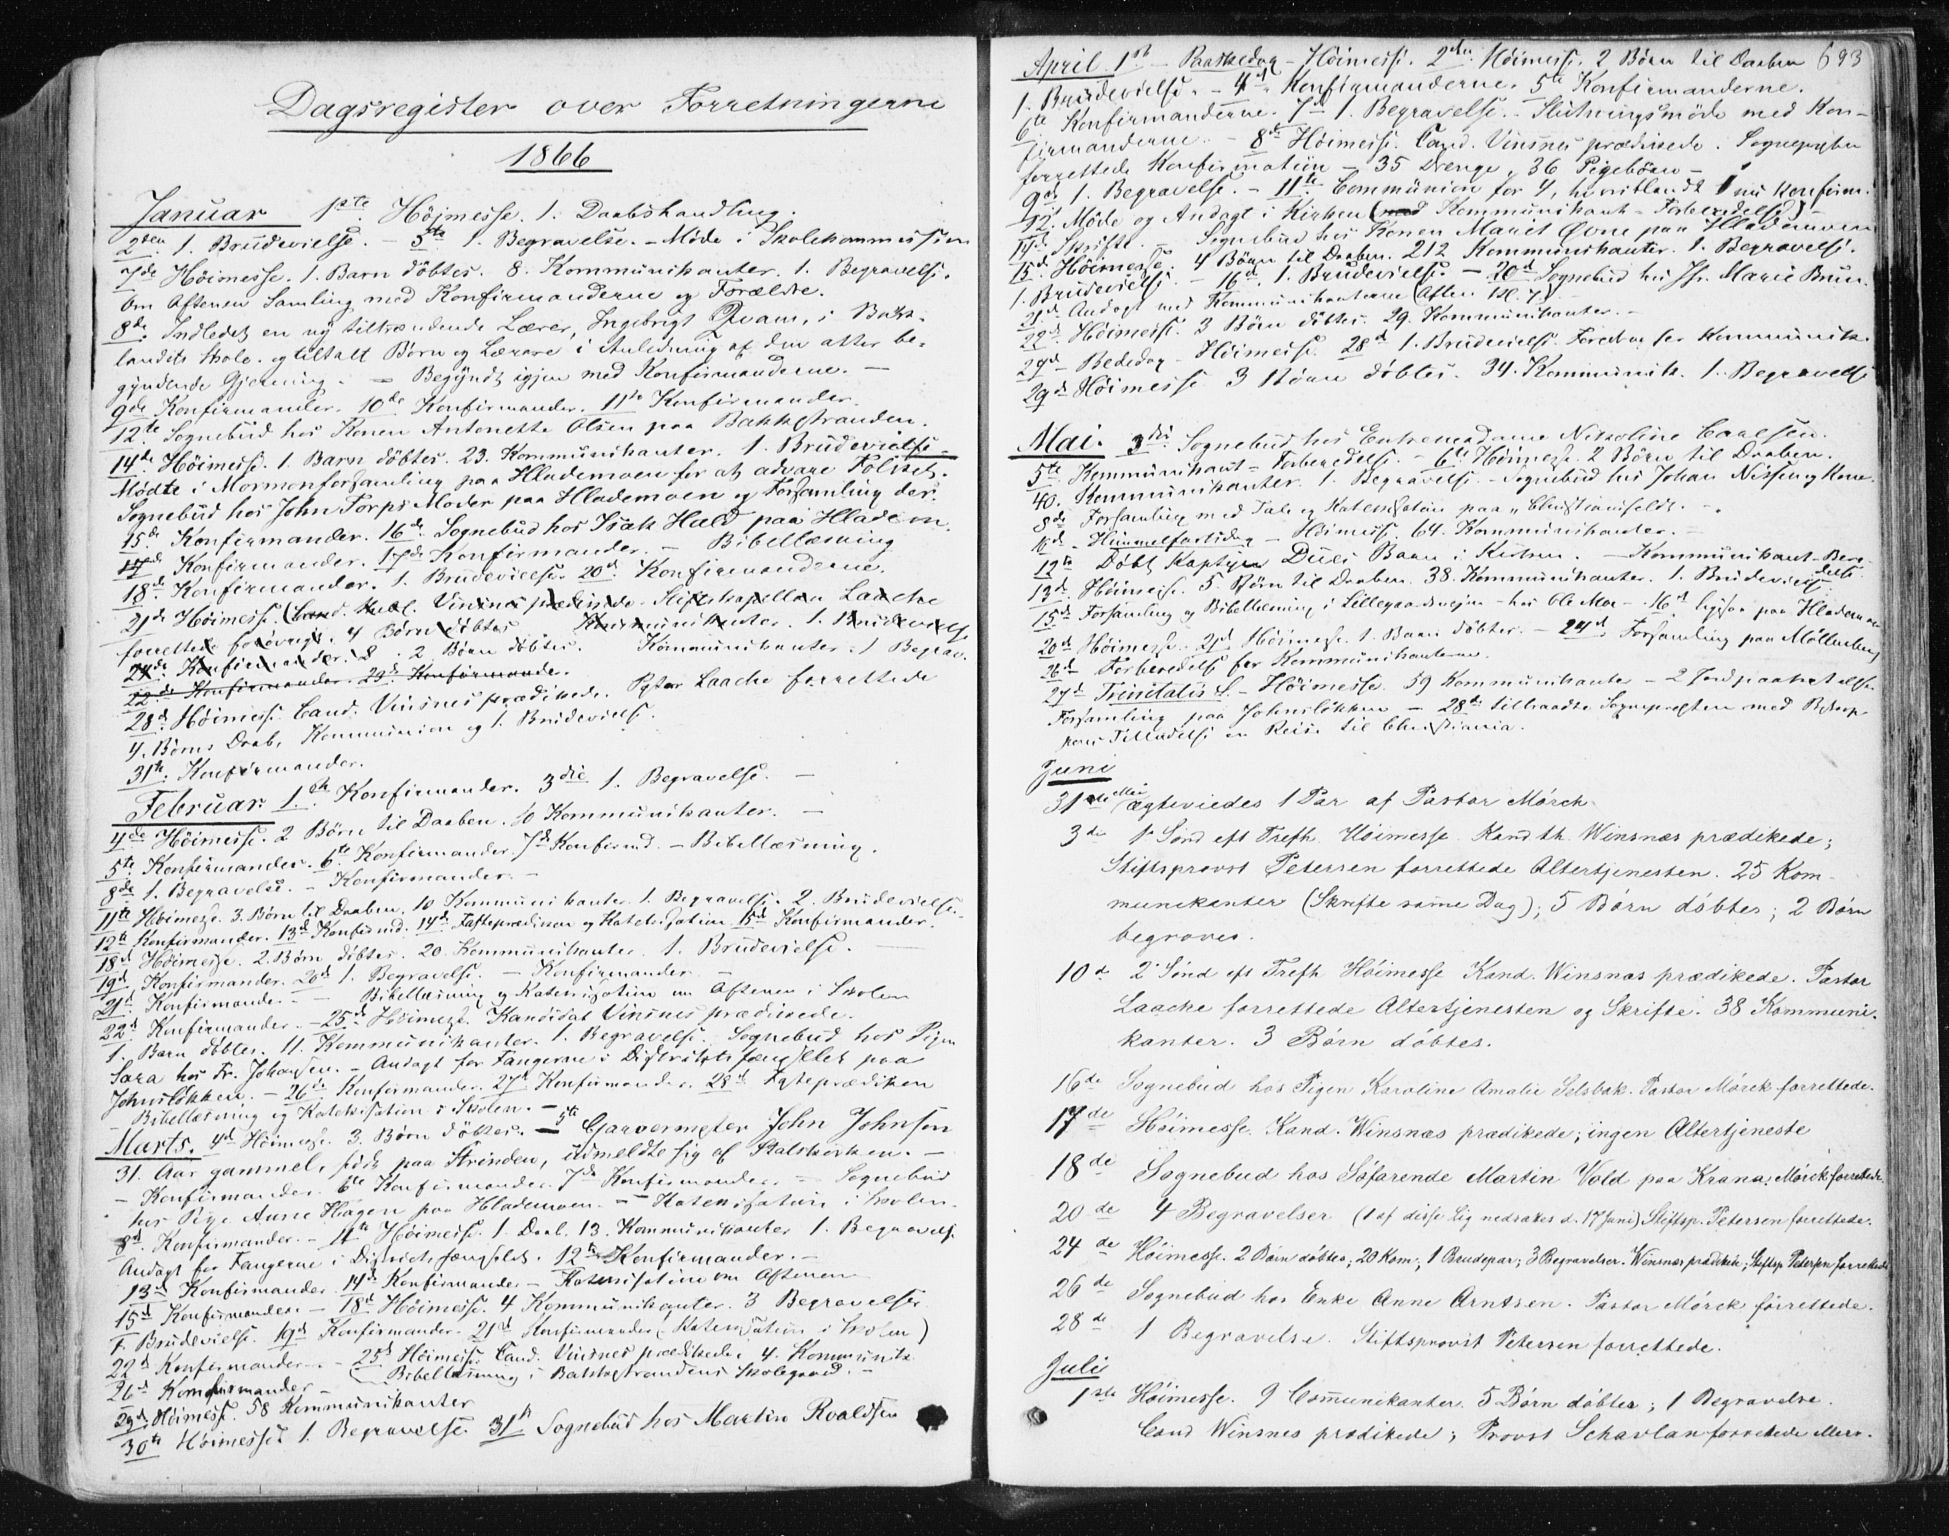 Dagsregister over Forretningerne
1866
Januar 1ste Höjmesse. 1. Daabshandling.
2den 1. Brudevielse. - 5te 1. Begravelse. - Möde i Skolekommissionen
7de Höimesse. 1. Barn döbtes. 8. Kommunikanter. 1. Begravelse.
Om Aftenen Samling med Konfirmanderne og Forældre.
8de Indledet en ny tiltrædende Lærer, Ingebrigt Qvam, i Bakk-
landets Skole. og tiltalt Börn og Lærere i Anledning af den atter be-
gyndende Gjerning. - Begyndt igjen med Konfirmanderne. -
9de Konfirmander. 10de Konfirmander. 11te Konfirmander.
12te Sognebud hos Konen Antonette Olsen paa Bakkstranden.
14de Höimesse. 1. Barn döbtes. 23. Kommunikanter. 1. Brudevielse.
Mödte i Mormonforsamling paa Hlademoen for at advare Folket.
Sognebud hos John Torps Moder paa Hlademoen og Forsamling der.
15de Konfirmander. 16de Sognebud hos Isak Hald paa Hladem.
17de Konfirmander. 17de Konfirmander. - Bibellæsning
18de Konfirmander. 1. Brudevielse. 20de Konfirmanderne.
21de Höimesse. (Cand. theol. Vinsnes prædikede. Stiftskapellan Laache
forrettede forövrigt. 4 Börn döbtes Kommunikanter. 1. Brudevielse
24de Konfirmander. 8. 2 Börn döbtes. Kommunikanter. 1 Begrav.
22de Konfirmander. 23de Konfirmande.
28de Höimesse. Cand. Vinsnes prædikede. Pastor Laache forrettede
4. Börns Daab, Kommunion og 1. Brudevielse.
31te Konfirmander.
Februar 1ste Konfirmander. 3die 1. Begravelse. -
4de Höimesse. 2 Börn til Daaben. 10 Kommunikanter. -
5te Konfirmander. 6te Konfirmander. 7de Konfirmd. - Bibellæsning.
8de 1. Begravelse. - Konfirmander. -
11te Höimesse. 3. Börn til Daaben. 10 Kommunikanter. 1. Begravelse. 2. Brudevielser.
12te Konfirmander. 13de Konfirmd. 14de Fasteprædiken og Katekisation. 15de Konfirmander.
18de Höimesse. 2. Börn döbtes. 20. Kommunikanter. 1. Brudevielse.
19de Konfirmander. 20de 1. Begravelse. - Konfirmander -
21de Konfirmander. - Bibellæsning og Katekisation om Aftenen i Skolen
22de Konfirmander. - 25de Höimesse. Kandidat Vinsnes prædikede.
1. Barn döbtes. 11. Kommunikanter. 1. Begravelse. Sognebud hos Pigen
Sara hos Fr. Johansen. - Andagt for Fangerne i Distriktsfængslet paa
Johnslökken. - 26de Konfirmander. 27de Konfirmander. 28de Fasteprædiken
- Bibellæsning og Katekisation i Skolen. -
Marts. 4de Höimesse. 3. Börn döbtes. - 5te Garvermester John Johnsen
31. Aar gammel, född paa Strinden, udmeldte sig af Statskirken. -
- Konfirmander. 6te Konfirmander. 7de Konfirmander. - Sognebud
hos Pige Anne Hagen paa Hlademoen. - Katekisation i Skolen.
8de Konfirmander. - 11te Höimesse. 1. Daab. 13. Kommunikanter 1. Begravelse.
Andagt for Fangerne i Distriktsfængslet. 12te Konfirmander. -
13de Konfirmander. 14de Konfirmander - Katekisation om Aftenen
15de Konfirmander. - 18de Höimesse. 4 Kommunikanter. 3 Begravelser
1. Brudevielse. 19de Konfirmander. 21de Konfirmander (Katekisation i Skolen)
22de Konfirmander. - 25de Höimesse. Cand. Vinsnes prædikede. 4. Kommunik.
26de Konfirmander - (Bibellæsning i Bakkstrandens Skolegaard. -
29de Höimesse. 58 Kommunikanter
30te Höimesse. 1. Begravelse. 31te Sognebud hos Martin Roaldsen
693
April 1ste Paaskedag - Höimesse. 2den Höimesse. 2 Börn til Daaben
1. Brudevielse. - 4de Konfirmanderne. 5te Konfirmanderne.
6te Konfirmanderne. 7de 1. Begravelse. - Slutningsmöde med Kon-
firmanderne. - 8de Höimesse. Cand. Vinsnes prædikede. Sognepresten
forrettede Konfirmation - 35 Drenge, 36 Pigebörn -
9de 1. Begravelse. - 11te Communion for 4, hvoriblandt 1 ny Konfirm.
12. Möde og Andagt i Kirken (med Kommunikant-Forberedelse) -
14de Skrifte. - Sognebud hos Konen Marit Övre paa Hlademoen
15de Höimesse. 4 Börn til Daaben. 212 Kommunikanter. 1. Begravelse.
1. Brudevielse. - 16de 1. Brudevielse. - 20de Sognebud hos Jfr. Marie Brun.
21de Andagt med Kommunikanterne (Aften Kl. 7). -
22de Höimesse. 3 Börn döbtes. 29. Kommunikanter. -
27de Bededag - Höimesse. 28de 1. Brudevielse. Foredrag for Kommunik.
29de Höimesse 3 Börn döbtes. 34. Kommunik. 1. Begravelse
Mai. 3die Sognebud hos Entremadame Nikoline Carlsen.
5te Kommunikant-Forberedelse - 6te Höimesse. 2 Börn til Daaben.
40. Kommunikanter. 1. Begravelse. - Sognebud hos Johan Nissen og Kone.
8de Forsamling med Tale og Katekisation paa "Christiansfeldt". -
10de - Himmelfartsdag - Höimesse. 64. Kommunikanter. -
12te Döbt Kaptejn Dues Barn i Kirken. - Kommunikant-Bere-
delse
13de Höimesse. 5. Börn til Daaben. 38. Kommunikanter. 1. Brudevielse
15de Forsamling og Bibellæsning i Lillegaardsvejen - hos Ole Moe - 16de ligesaa paa Hlademoen
20de Höimesse. 21de Höimesse. 1. Barn döbtes. - 24de Forsamling paa Möllenberg
26de Forberedelse for Kommunikanterne.
27de Trinitatis S. - Höimesse. 59 Kommunikanter - 2 Jordpaakastelser.
Forsamling paa Johnslökken - 28de tiltraadte Sognepresten med Biskop-
pens Tilladelse en Reise til Christiania.
Juni
31te Mai ægteviedes 1 Par af Pastor Mörch
3de 1ste Sönd eft Trefh Höimesse. Kand th. Winsnæs prædikede;
Stiftsprovst Petersen forrettede Altertjenesten. 25 Kom-
munikanter (Skrifte samme Dag); 5 Börn döbtes; 2 Börn
begroves.
10de 2. Sönd eft Trefh Höimesse Kand. Winsnæs prædikede. Pastor
Laache forrettede Altertjenesten og Skrifte. 38 Kommuni-
kanter. 3 Börn döbtes.
16de Sognebud hos Pigen Karoline Amalie Selsbak. Pastor Mörck forrettede.
17de Höimesse. Kand. Winsnæs prædikede; ingen Altertjeneste
18de Sognebud hos Söfarende Martin Vold paa Krana; Mörck forrettede
20de 4 Begravelser (1 af disse Lig nedsattes d. 17 Juni) Stiftsp. Petersen forrettede.
24de Höimesse. 2 Börn döbtes; 20 Kom.; 1 Brudepar; 3 Begravelser. Winsnæs prædiked; Stiftsp. Petersen forrettede
26de Sognebud hos Enke Anne Arntsen. Pastor Mörck forrettede.
28de 1 Begravelse. Stiftsprovst Petersen forrettede.
Juli
1ste Höimesse. 9 Comunikanter. 5 Börn döbtes; 1 Begravelse.
Cand Winsnes prædikede; Provst Schavlan forrettede Mess.